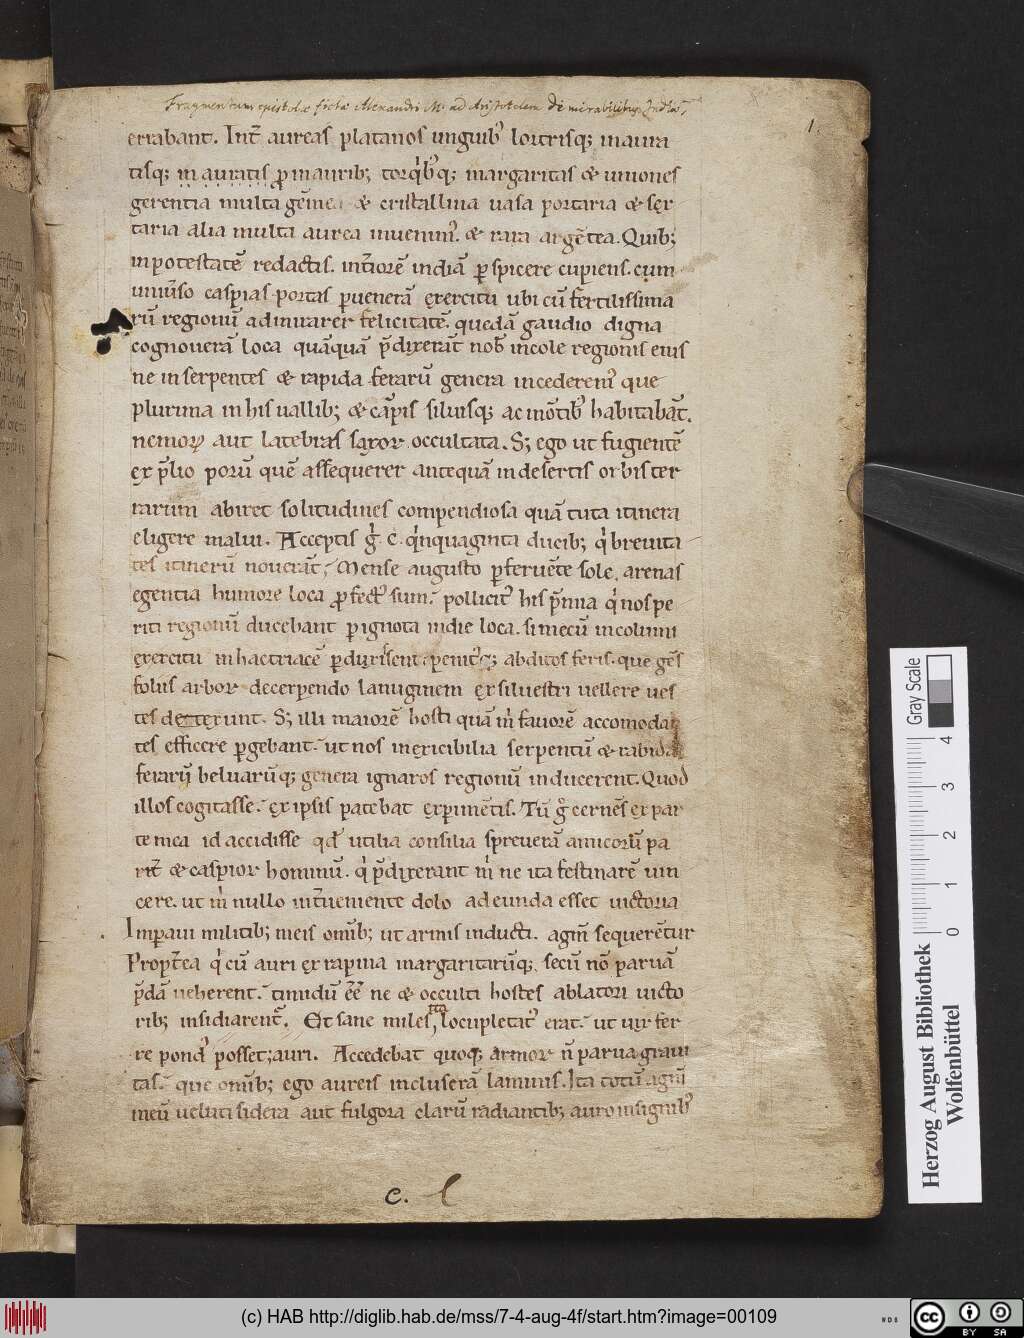 Fragmentum epistolæ fictæ Alexandri M. ad Aristotelem de mirabilibus Indiæ.
1.
errabant. Int̄ aureas platanos unguib᾽ loricrisq; inaura
tisq; inauratis p̄ inaurib; torq̇b᾽q; margaritas & uniones
gerentia multa gēmea & cristallina uasa portaria & ser
taria alia multa aurea inuenim᾽. & rara argētea. Quib;
inpotestatē redactis. int̄iorē indiā ꝑspicere cupiens. cum
uniūso caspias portas ꝑuenerā exercitu ubi cū fertilissima
rū regionū admirarer felicitatē. quedā gaudio digna
cognouerā loca quāquā p̄dixerāt nob̄ incole regionis eius
ne in serpentes & rapida ferarū genera incederem᾽ que
plurima in his uallib; & cāpis siluisq; ac mōtib᾽ habitabāt.
nemoꝝ aut latebras saxoꝝ occultata. S; ego ut fugientē
ex p̄lio porū quē assequerer antequā indesertis orbis ter
rarum abiret solitudines compendiosa quā tuta itinera
eligere malui. Acceptis g̊ .c. q̇nquaginta ducib; q̇ breuita
tes itinerū nouerāt. Mense augusto ꝑferuēte sole. arenas
egentia humore loca ꝓfect᾽ sum. pollicit᾽ his p̄mia q̇ nos pe
riti regionū ducebant ꝑ ignota indie loca. si mecū incolumi
exercitu in hac triacē ꝑduxisent penit᾽q; abditos seris. que gēs
foliis arbor decerpendo lanuginem ex siluestri uellere ues
tes detexunt. S; illi maiorē hosti quā m̊ fauorē accomodan
tes efficere ꝑgebant. ut nos inextricibilia serpentū & rabida
ferarū beluarūq; genera ignaros regionū inducerent. Quod
illos cogitasse. ex ipsis patebat exꝑimētis. Tū g̊ cernēs ex par
te mea id accidisse qd᾽ utilia consilia spreuerā amicorū pa
rit̄ & caspior hominū. q̇ p̄dixerant m̊ ne ita festinarē uin
cere. ut m̊ nullo int̄ueniente dolo adeunda esset uictoria
Imperaui militib; meis omīb; ut armis inducti. agm̄ sequerētur
Propt̄ea q̇ cū auri ex rapina margaritarūq; secū nō paruā
p̄dā ueherent. timidū ēē ne & occulti hostes ablatori uicto
rib; insidiarent᾽. Et sane miles ita locupletat᾽ erat. ut uix fer
re pond᾽ posset; auri. Accedebat quoq; armor n̄ parua graui
tas. que omīb; ego aureis incluserā laminis. Ita totū agm̄
meū ueluti sidera aut fulgora clarū radiantib; auro insignib᾽
c. l
Herzog August Bibliothek
Wolfenbüttel
0 1 2 3 4
Gray Scale
(c) HAB http://diglib.hab.de/mss/7-4-aug-4f/start.htm?image=00109
WDB
cc BY SA